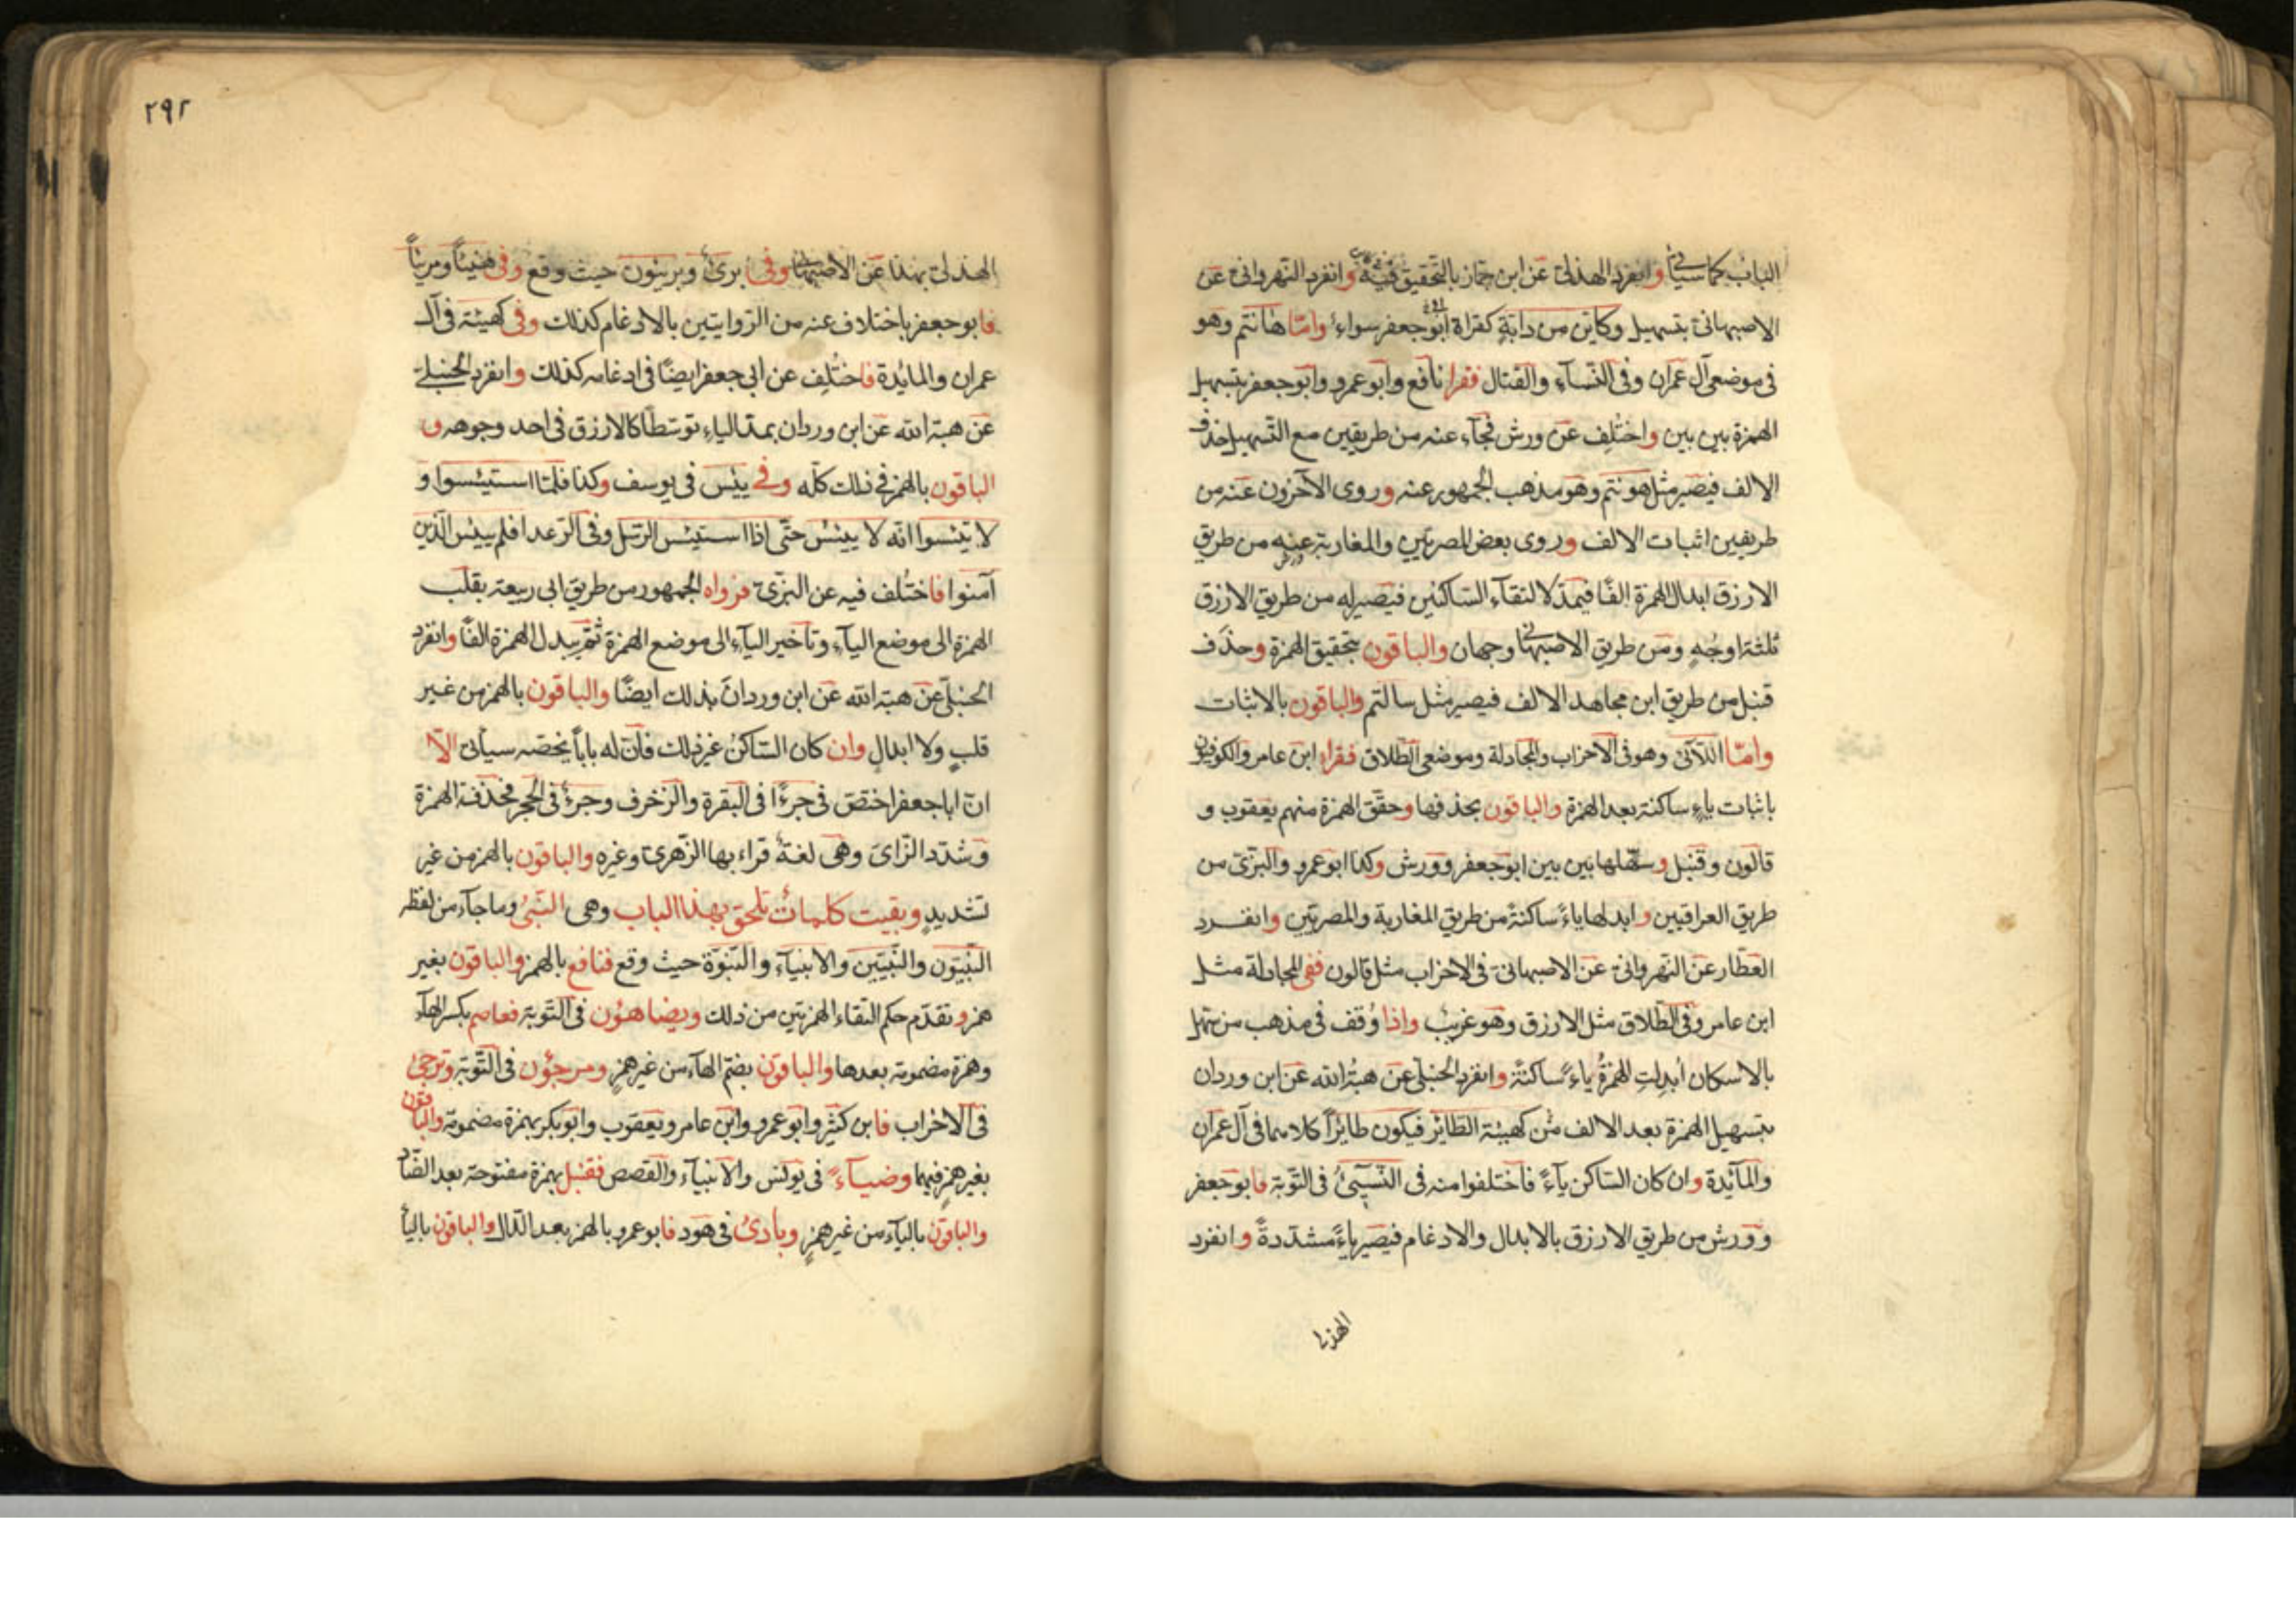 الباب كما سيأتي وانفرد الهذلي عن ابن جماز بالتحقيق فيه وانفرد النهرواني عن
الاصبهاني بتسهيل وكاين من دابة كقراة ابو جعفر سواء واما هانتم وهو
في موضعي آل عمران وفي النساء والقتال فقرا نافع وابو عمرو وابو جعفر بتسهيل
الهمزة بين بين واختلف عن ورش فجآء عنه من طريقين مع التسهيل حذف
الالف فيصير مثل هونتم وهو مذهب الجمهور عنه وروى الآخرون عنه من
طريقين اثبات الالف وروى بعض المصريين والمغاربة عنه من طريق
الازرق ابدال الهمزة الفًا فيمد لالتقآء الساكنين فيصير له من طريق الازرق
ثلثة اوجُهٍ ومن طريق الاصبهاني وجهان والباقون بتحقيق الهمزة وحذف
قنبل من طريق ابن مجاهد الالف فيصير مثل سالتم والباقون بالاثبات
وامّا اللآئى وهو في الاحزاب والمجادلة وموضعي الطلاق فقراء ابن عامر والكوفيون
باثبات ياءٍ ساكنة بعد الهمزة والباقون بحذفها وحقّق الهمزة منهم يعقوب و
قالون وقنبل وسهّلها بين بين ابو جعفر وورش وكذا ابو عمرو والبزّى من
طريق العراقيين وابدلها ياءً ساكنةً من طريق المغاربة والمصريّين وانفرد
العطّار عن النهرواني عن الاصبهاني في الاحزاب مثل قالون ففي المجادلة مثل
ابن عامر وفي الطّلاق مثل الازرق وهو غريبٌ واذا وُقف في مذهب من سهل
بالاسكان اُبدِلتِ الهمزةُ ياءً ساكنةً وانفرد الحنبلي عن هبةُ الله عن ابن وردان
بتسهيل الهمزة بعد الالف من كهيئة الطّائر فيكون طائرًا كلاهما في آل عمران
والمآئدة وان كان الساكن يآءً فاختلفوا منه في النّسيئُ في التّوبة فابو جعفر
وورش من طريق الازرق بالابدال والادغام فيصير ياءً مشدّدةً وانفرد
الهذلي
٢٩٢
الهذلي بهذا عن الاصبهاني وفي برئ وبريئون حيث وقع وفي هنيئاً ومريئاً
فابو جعفر باختلاف عنه من الرّوايتين بالادغام كذلك وفي كهيئة في آل
عمران والمائدة فاختُلِف عن ابي جعفر ايضًا في ادغامه كذلك وانفرد الحنبلي
عن هبة الله عن ابن وردان بمدّ الياء توسّطًا كالازرق في احد وجوهه و
الباقون بالهمز في ذلك كلّه وفي ييئس في يوسف وكذا فلمّا استيئسوا و
لا تيئسوا انّه لا ييئس حتّى اذا استيئس الرّسل وفي الرّعد افلم ييئس الّذين
آمنوا فاختُلف فيه عن البزّى فرواه الجمهور من طريق ابي ربيعة بقلب
الهمزة الى موضع اليآء وتأخير اليآء الى موضع الهمزة ثمّ يبدل الهمزة الفًا وانفرد
الحنبلي عن هبة الله عن ابن وردان بذلك ايضًا والباقون بالهمز من غير
قلبٍ ولا ابدالٍ وان كان السّاكن غير ذلك فانّ له باباً يخصّه سيأتى الّا
انّ ابا جعفر اختصّ في جزءًا في البقرة والزّخرف وجزءٌ في الحجر فحذف الهمزة
وشدّد الزّاى وهي لغةٌ قراء بها الزّهرى وغيره والباقون بالهمز من غير
تشديدٍ وبقيت كلماتٌ تلحق بهذا الباب وهى النّبيُ وما جآء من لفظه
النّبيّون والنّبيّين والانبيآء والنّبوّة حيث وقع فنافع بالهمز والباقون بغير
همز وتقدّم حكم التقاء الهمزتين من ذلك ويضاهئون في التّوبة فعاصم بكسر الهآء
وهمزة مضمومة بعدها والباقون بضمّ الهآء من غير همزٍ ومرجؤن في التّوبة وترجئ
في الاحزاب فابن كثير وابو عمرو وابن عامر ويعقوب وابو بكر بهمزة مضمومة والباقون
بغير همزٍ فيهما وضيآءً في يونس والانبيآء والقصص فقنبل بهمزة مفتوحة بعد الضّاد
والباقون باليآء من غير همزٍ وبادئ في هود فابو عمرو بالهمز بعد الدّال والباقون باليآء